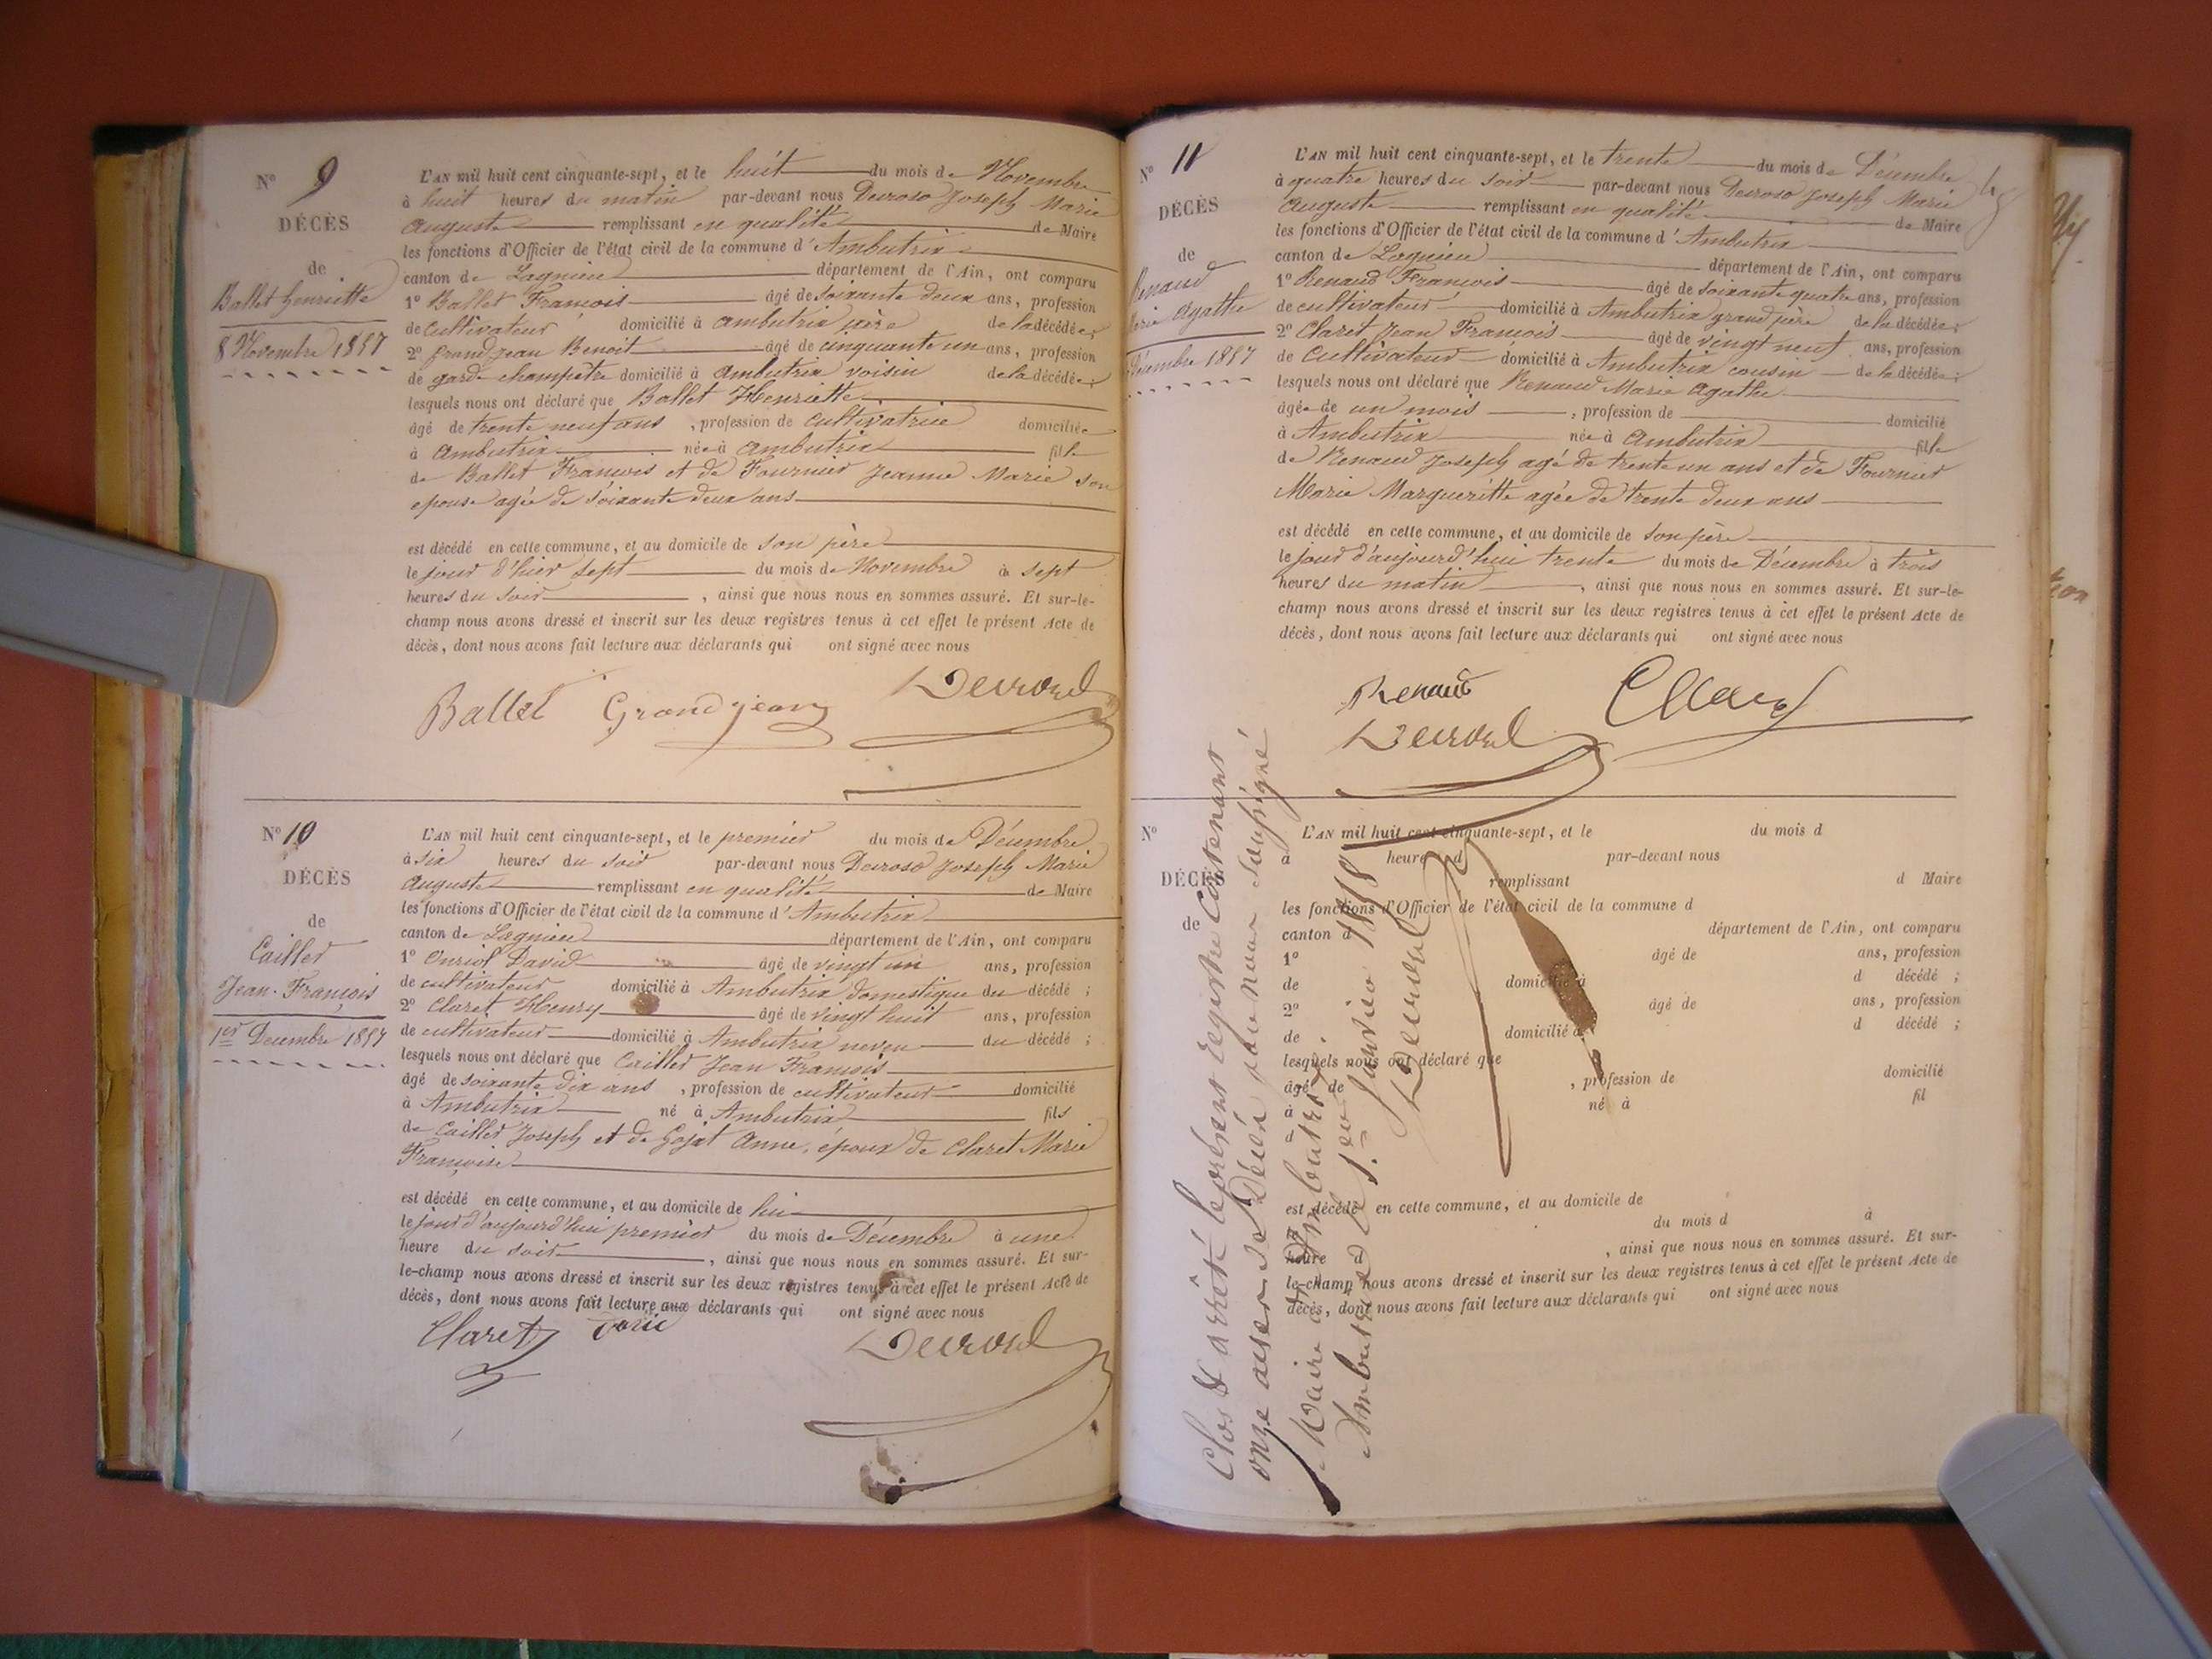 N° 9
DÉCÈS
de
Ballet Henriette
8 Novembre 1857
L'AN mil huit cent cinquante-sept, et le huit du mois de Novembre
à huit heures du matin par-devant nous Joseph Marie
Auguste remplissant en qualité de Maire
les fonctions d'Officier de l'état civil de la commune d'Ambutrix
canton de Lagnieu département de l'Ain, ont comparu
1° Ballet François âgé de soixante deux ans, profession
de cultivateur domicilié à Ambutrix père de la décédée ;
2° Grandjean Benoit âgé de cinquante un ans, profession
de garde champêtre domicilié à Ambutrix voisin de la décédée ;
lesquels nous ont déclaré que Ballet Henriette
âgé de trente neuf ans , profession de cultivatrice domiciliée
à Ambutrix née à Ambutrix fille
de Ballet François et de Fournier Jeanne Marie son
epouse agée de soixante deux ans
est décédé en cette commune, et au domicile de son père
le jour d'hier sept du mois de Novembre à sept
heures du soir , ainsi que nous nous en sommes assuré. Et sur-le-
champ nous avons dressé et inscrit sur les deux registres tenus à cet effet le présent Acte de
décès, dont nous avons fait lecture aux déclarants qui ont signé avec nous
Ballet Grandjean
N° 10
DÉCÈS
de
Caillet
Jean-François
1er Decembre 1857
L'AN mil huit cent cinquante-sept, et le premier du mois de Décembre
à six heures du soir par-devant nous Joseph Marie
Auguste remplissant en qualité de Maire
les fonctions d'Officier de l'état civil de la commune d'Ambutrix
canton de Lagnieu département de l'Ain, ont comparu
1° David âgé de vingt un ans, profession
de cultivateur domicilié à Ambutrix domestique du décédé ;
2° Claret Henry âgé de vingt huit ans, profession
de cultivateur domicilié à Ambutrix neveu du décédé ;
lesquels nous ont déclaré que Caillet Jean François
âgé de soixante dix ans , profession de cultivateur domicilié
à Ambutrix né à Ambutrix fils
de Caillet Joseph et de Gojat Anne, époux de Claret Marie
Françoise
est décédé en cette commune, et au domicile de lui
le jour d'aujourd'hui premier du mois de Décembre à une
heure du soir , ainsi que nous nous en sommes assuré. Et sur-
le-champ nous avons dressé et inscrit sur les deux registres tenus à cet effet le présent Acte de
décès, dont nous avons fait lecture aux déclarants qui ont signé avec nous
Claret
N° 11
DÉCÈS
de
Renaud
Marie Agathe
Décembre 1857
L'AN mil huit cent cinquante-sept, et le trente du mois de Décembre
à quatre heures du soir par-devant nous Joseph Marie
Auguste remplissant en qualité de Maire
les fonctions d'Officier de l'état civil de la commune d'Ambutrix
canton de Lagnieu département de l'Ain, ont comparu
1° Renaud François âgé de soixante quatre ans, profession
de cultivateur domicilié à Ambutrix grand père de la décédée ;
2° Claret Jean François âgé de vingt neuf ans, profession
de cultivateur domicilié à Ambutrix cousin de la décédée ;
lesquels nous ont déclaré que Renaud Marie Agathe
âgée de un mois , profession de domicilié
à Ambutrix née à Ambutrix fille
de Renaud Joseph agé de trente un ans et de Fournier
Marie Margueritte agée de trente deux ans
est décédé en cette commune, et au domicile de son père
le jour d'aujourd'hui trente du mois de Décembre à trois
heures du matin , ainsi que nous nous en sommes assuré. Et sur-le-
champ nous avons dressé et inscrit sur les deux registres tenus à cet effet le présent Acte de
décès, dont nous avons fait lecture aux déclarants qui ont signé avec nous
Renaud
N°
DÉCÈS
de
L'AN mil huit cent cinquante-sept, et le du mois d
à heure d par-devant nous
remplissant d Maire
les fonctions d'Officier de l'état civil de la commune d
canton d département de l'Ain, ont comparu
1° âgé de ans, profession
de domicilié à d décédé ;
2° âgé de ans, profession
de domicilié à d décédé ;
lesquels nous ont déclaré que
âgé de , profession de domicilié
à né à fil
d
est décédé en cette commune, et au domicile de
du mois d à
heure d , ainsi que nous nous en sommes assuré. Et sur-
le-champ nous avons dressé et inscrit sur les deux registres tenus à cet effet le présent Acte de
décès, dont nous avons fait lecture aux déclarants qui ont signé avec nous
Clos & arrêté le présent registre contenant
onze actes de Décès par nous soussigné
Maire d'Ambutrix.
Ambutrix le 1.er Janvier 1858